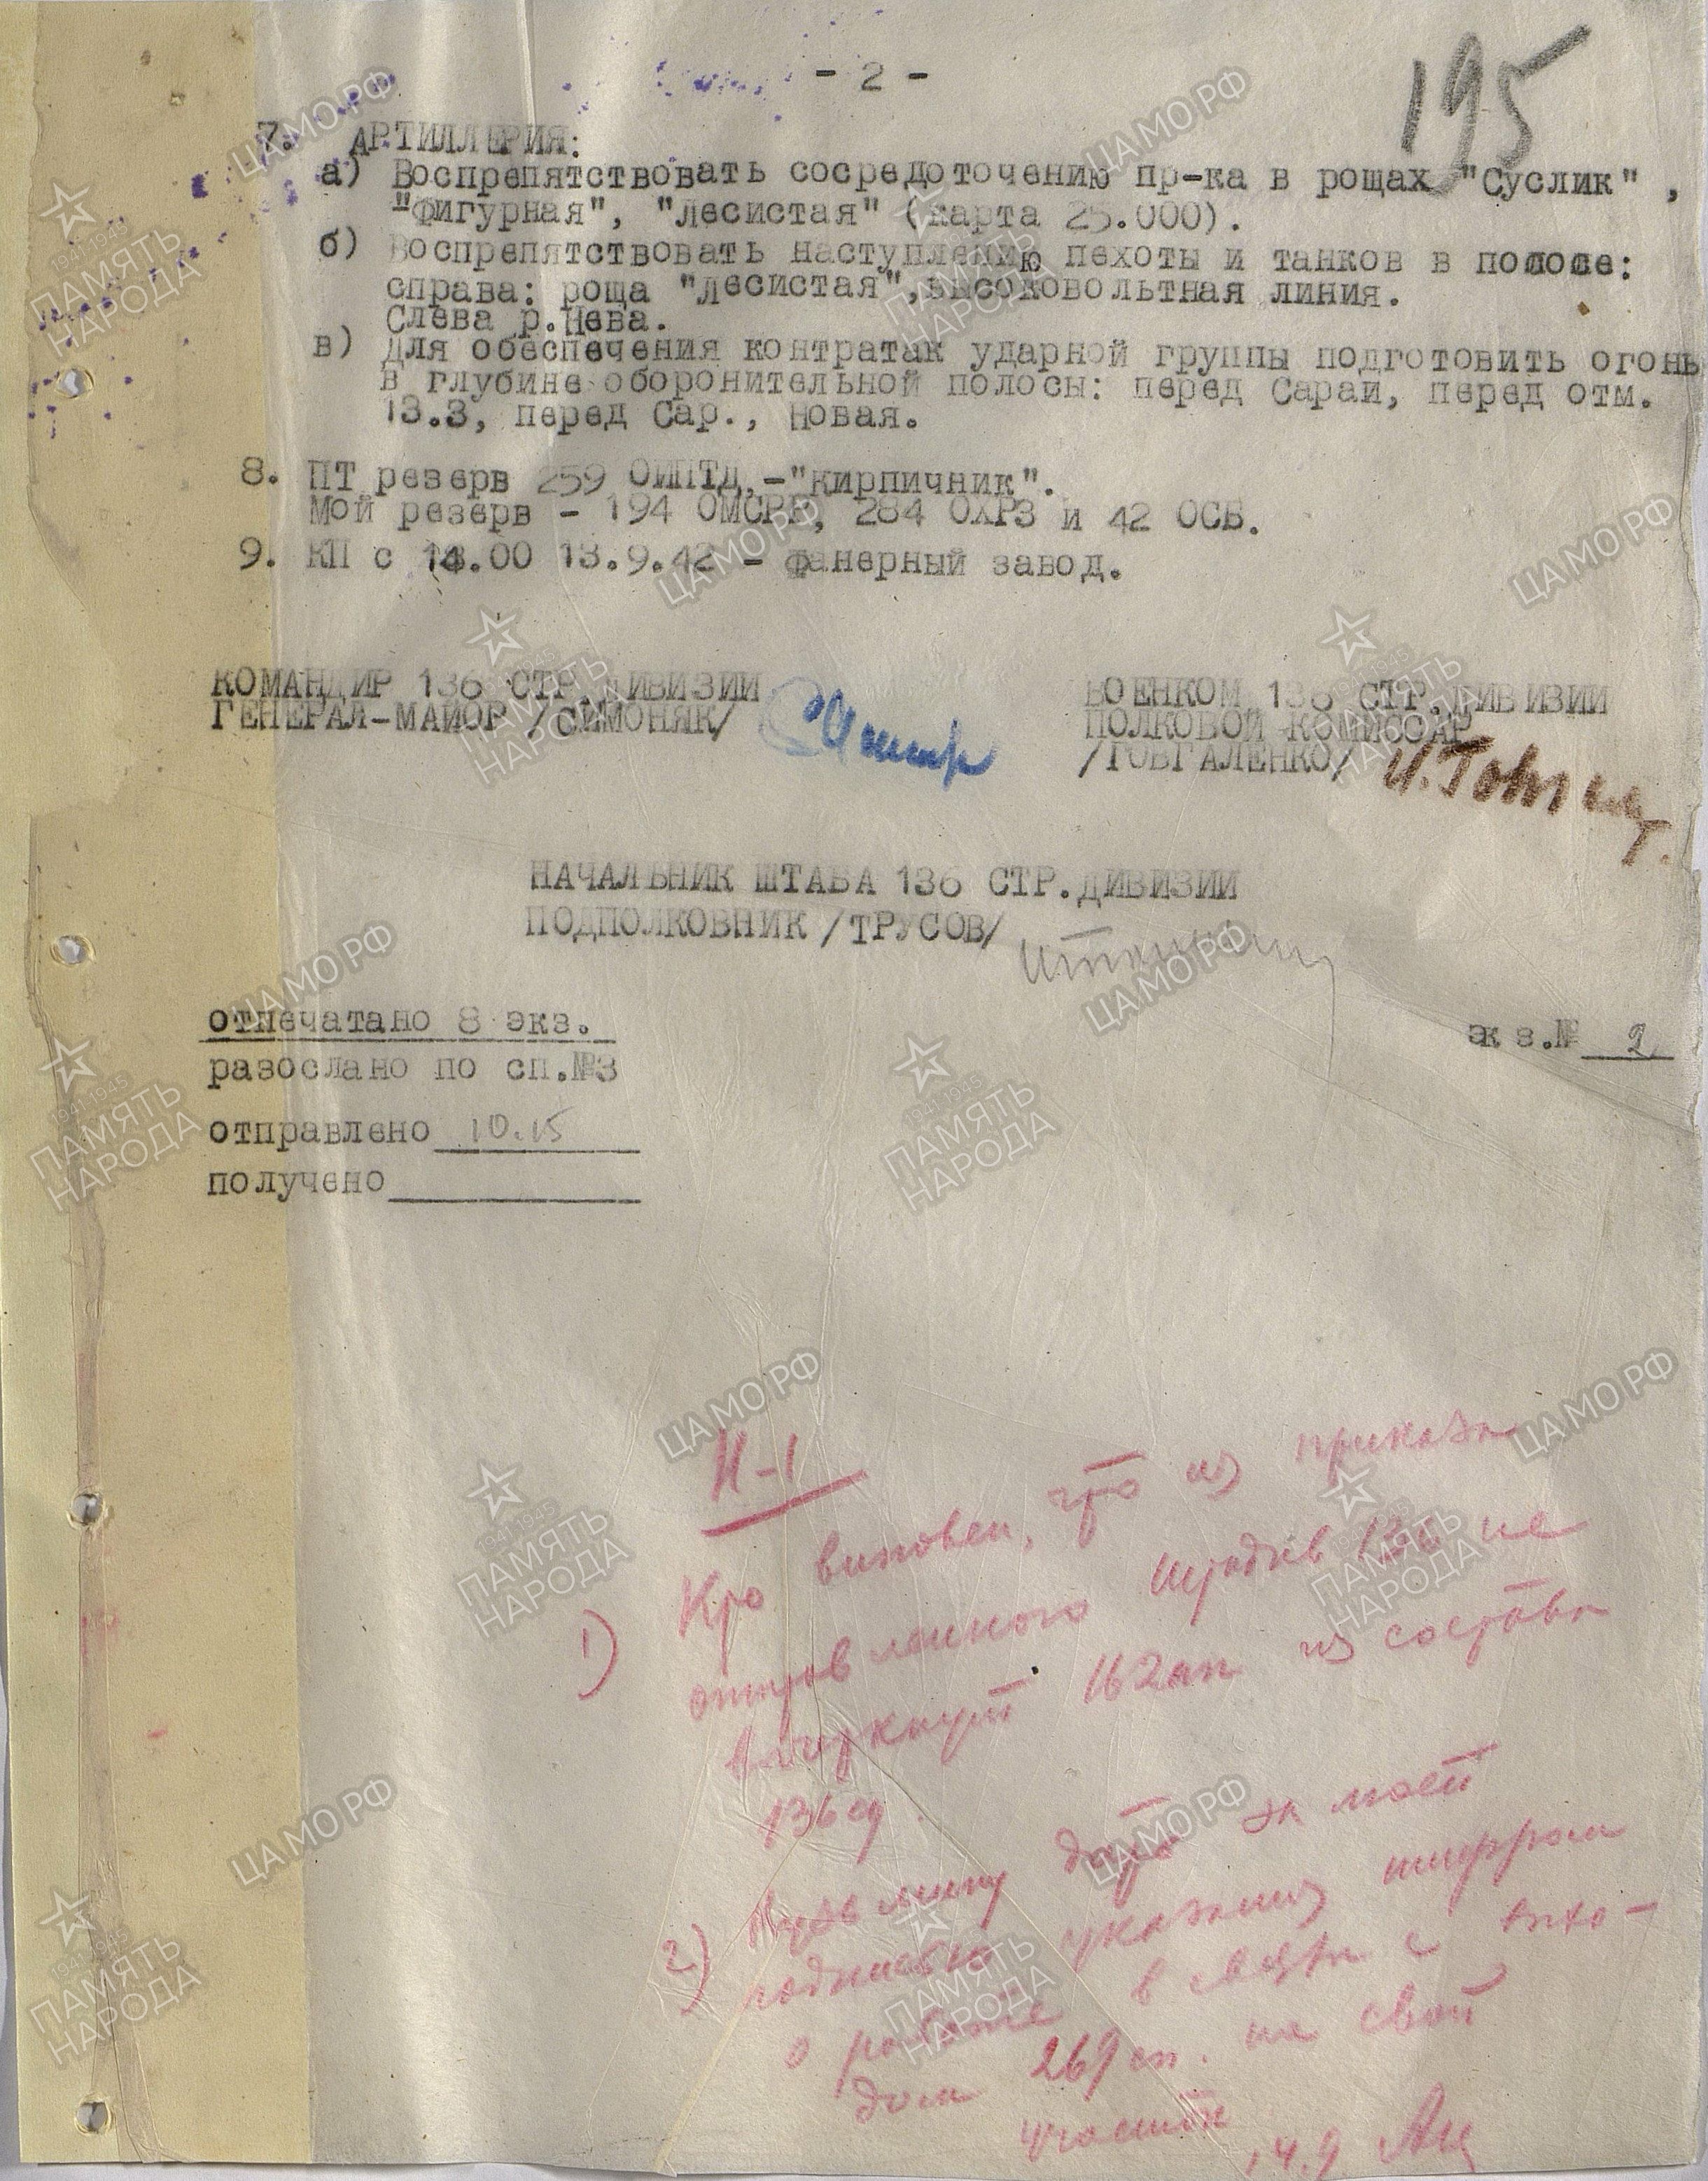 - 2 -
195
7. АРТИЛЛЕРИЯ:
а) Воспрепятствовать сосредоточению пр-ка в рощах "Суслик",
"Фигурная", "Лесистая" (карта 25.000).
б) Воспрепятствовать наступлению пехоты и танков в полосе:
справа: роща "Лесистая", высоковольтная линия.
Слева р.Нева.
в) Для обеспечения контратак ударной группы подготовить огонь
в глубине оборонительной полосы: перед Сараи, перед отм.
13.3, перед Сар., Новая.
8. ПТ резерв 259 ОИПТД,-"Кирпичник".
Мой резерв - 194 ОМСРБ, 284 ОХРЗ и 42 ОСБ.
9. КП с 14.00 13.9.42 - фанерный завод.
КОМАНДИР 136 СТР.ДИВИЗИИ
ГЕНЕРАЛ-МАЙОР /СИМОНЯК/
ВОЕНКОМ 136 СТР.ДИВИЗИИ
ПОЛКОВОЙ КОМИССАР
/ГОВГАЛЕНКО/
НАЧАЛЬНИК ШТАБА 136 СТР.ДИВИЗИИ
ПОДПОЛКОВНИК /ТРУСОВ/
отпечатано 8 экз.
экз.№ 2
разослано по сп.№3
отправлено 10.15
получено
Н-1
1) Кто виновен, что из приказа
отправленного штадив 136 не
вычеркнут 162 ап из состава
136 сд.
2) дать за моей
подписью указания шифром
о работе в связи с выхо-
дом 269 сп. на свой
участок
14.9
ЦАМО.РФ
1941-1945
ПАМЯТЬ
НАРОДА